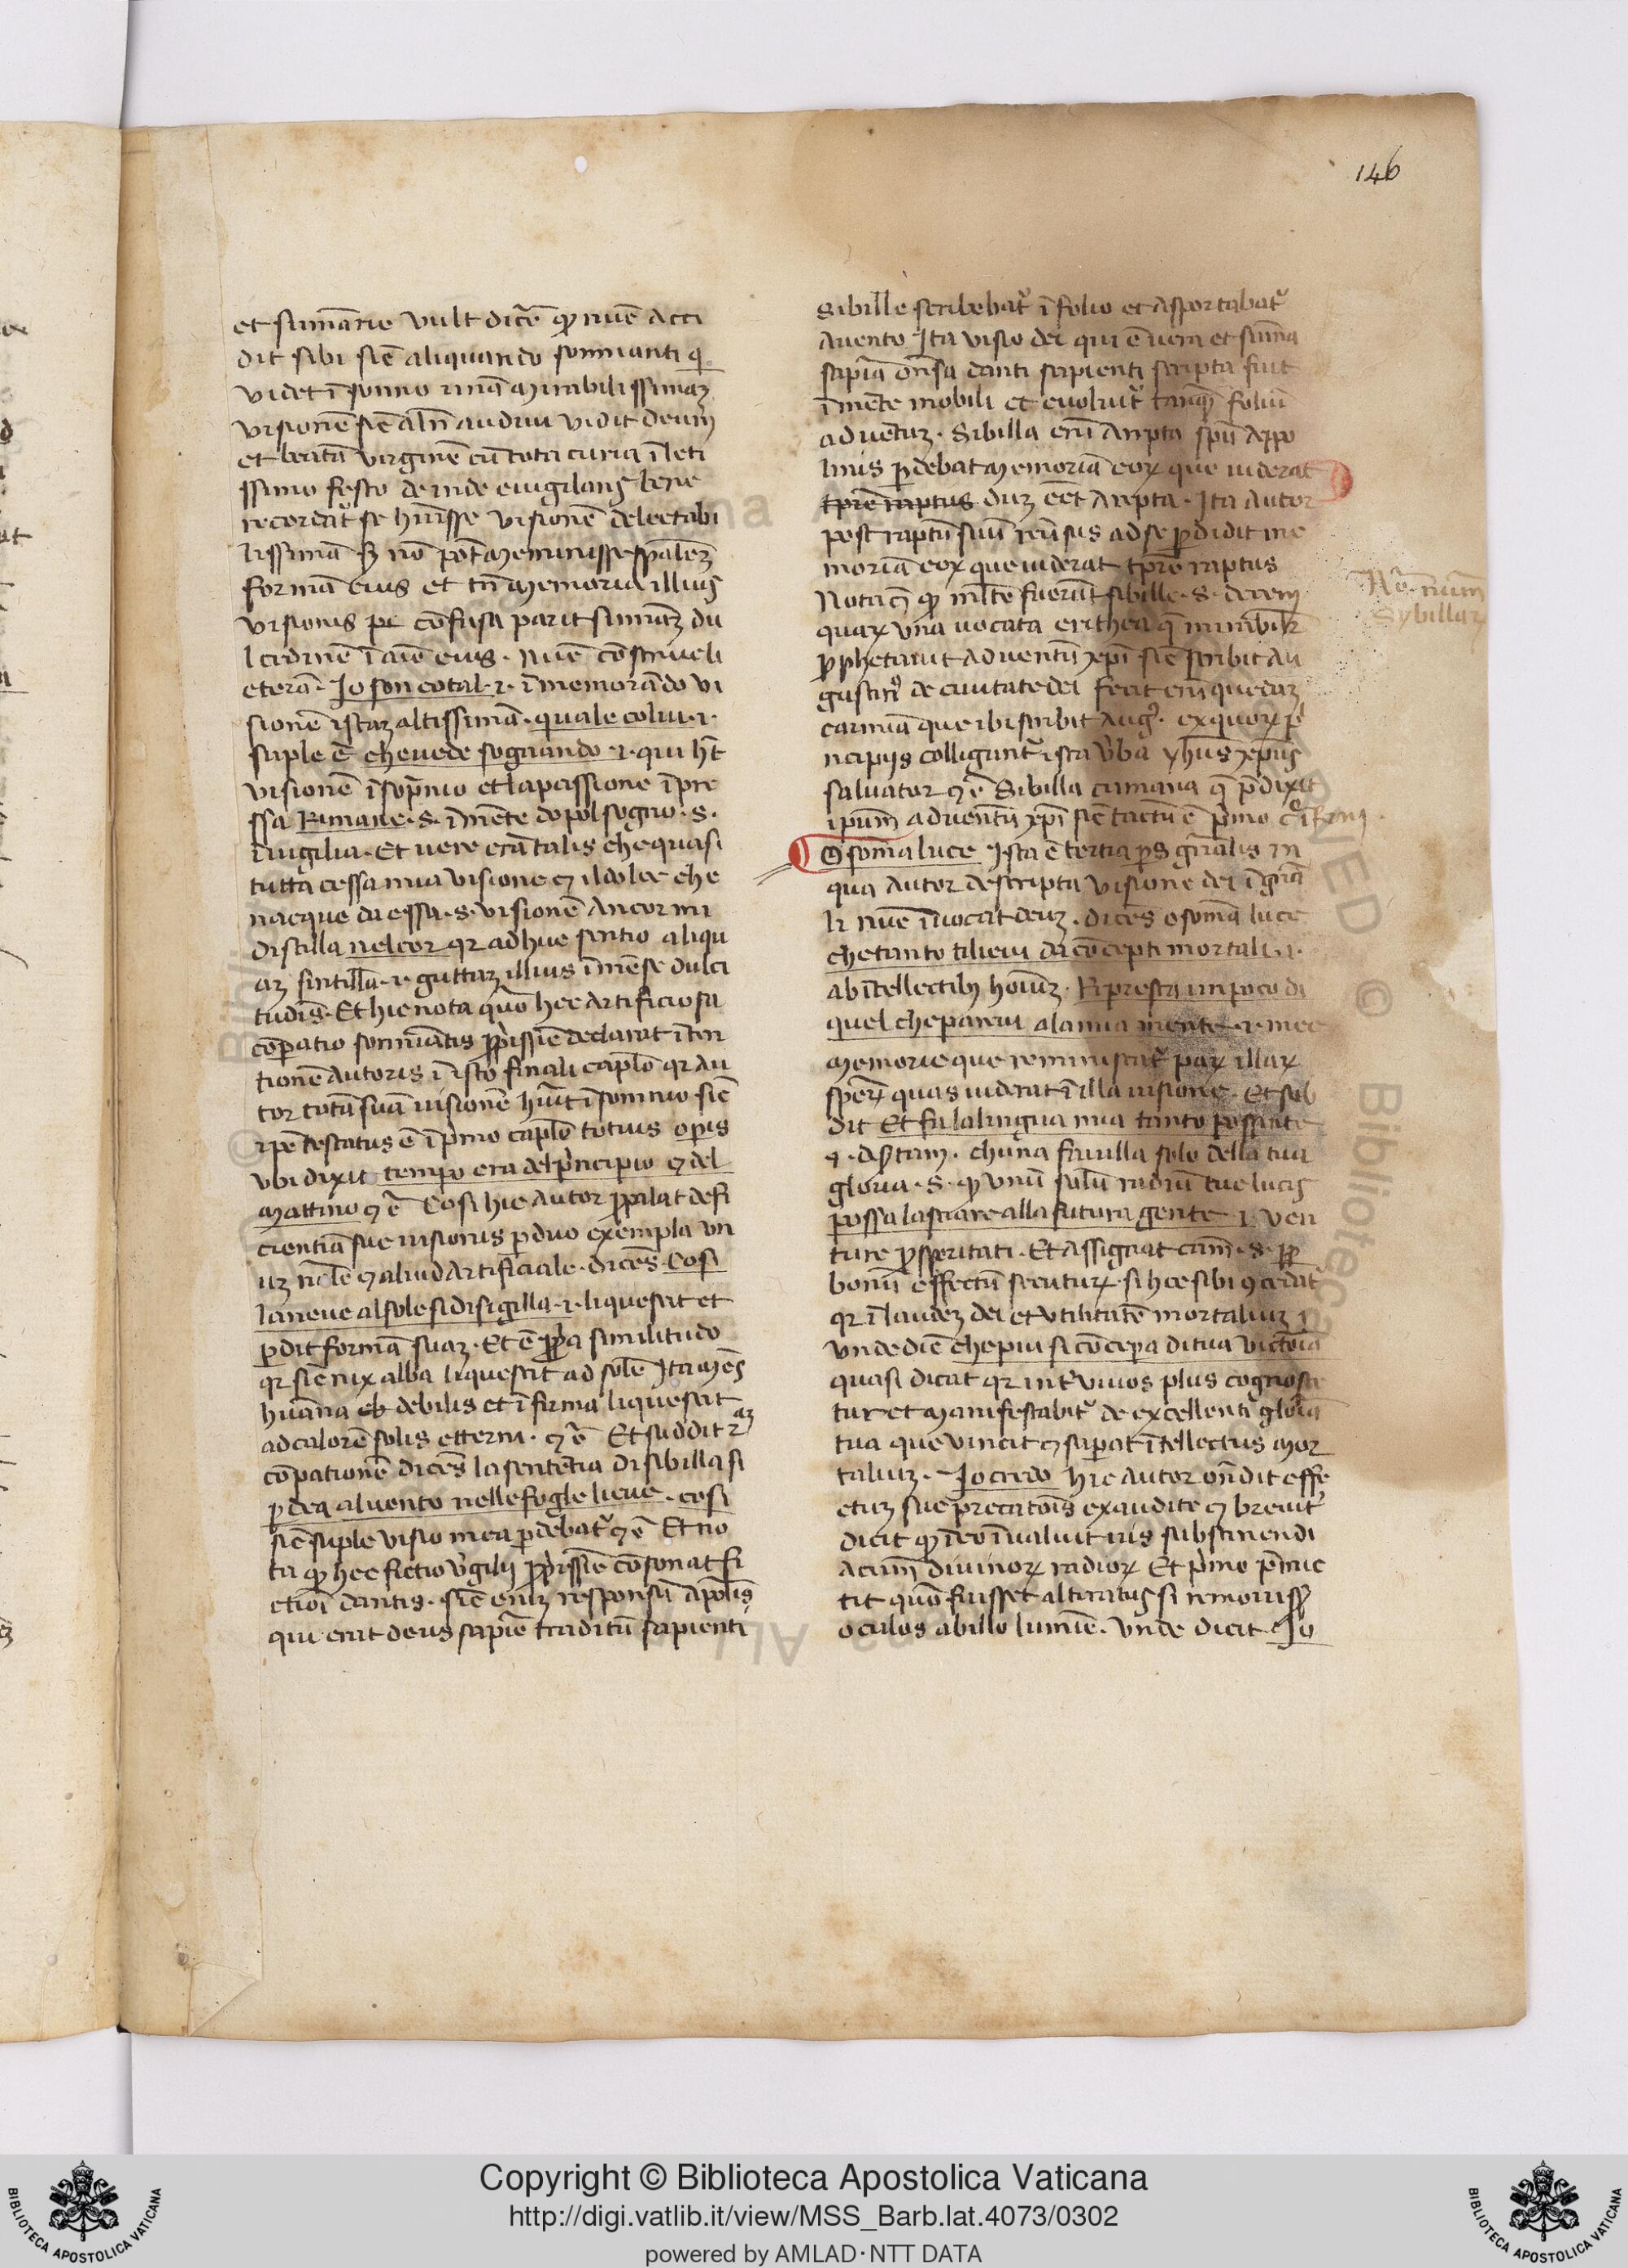 146
et sumarie vult dicere quod nunc acci
dit sibi sic aliquando somnianti qui
videt in somno unam mirabilissimaz
visionem sic aliquando audivi vidit deum
et beatam virginem cum tota curia in leti
ssimo festo deinde euigilans bene
recordatur se habuisse visionem delectabi
lissimam sed non potest meminisse specialem
formam eius et tamen memoria illius
visionis confusa parit dul
cedinem in animo eius. nunc construe li
cteram. Io son cotal. in memorando vi
sionem istaz altissimam. quale colui
suple est che vede sognando. qui habet
visionem in sopnio et la passione impre
ssa Rimane. s. in mente dopo'l sogno. s.
in uigilia. Et vere eram talis che quasi
tutta cessa mia visione et il dolce che
nacque da essa. s. visione ancor mi
distilla nel cor quia adhuc sentio aliqu
am guttaz illius immense dulci
tudinis. Et hic nota quomodo hec artificiosa
comparatio somniantis propriissime declarat inten
tionem autoris in isto finali capitulo quia au
tor totam suam visionem habuit in somnio sicut
ipse testatus est in primo capitulo totius operis
ubi dixit tempo era del principio et del
mattino etc. Cosi hic autor propalat defi
cientiam sue visionis per duo exempla un
um naturale et aliud artificiale. dicens. Cosi
la neve al sole si disigilla. liquescit et
perdit formam suaz. Et est propria similitudo
quia sicut nix alba liquescit ad solem Ita mens
humana debilis et infirma liquescit
ad calorem solis etterni. etc. Et subdit
comparationem dicens la sententia di sibilla si
perdea al vento nelle fogle lieve. cosi
sic suple visio mea perdebatur etc. Et no
ta quod hec fictio virgilii propriissime consonat fi
ctioni dantis. sicut enim responsum apolinis
qui erat deus sapientie traditum sapienti
sibille scribebatur in folio et asportabatur
a vento Ita visio dei qui est vera et summa
sapientia ostensa danti sapienti scripta fuit
in mente mobili et evolvitur tamquam folium
ad ventuz. Sibilla enim arepta spiritu appo
linis perdebat memoriam eorum que viderat
tempore raptus duz esset arepta. Ita autor
post raptum suum reversus ad se perdidit me
moriam eorum que viderat tempore raptus
Nota etiam quod multe fuerunt sibille. s. decem
quarum una vocata erithea que mirabiliter
prophetavit adventum christi sicut scribit au
gustinus de civitate dei fecit enim quedaz
carmina que ibi scribit Aug. ex quorum pri
ncipiis colliguntur ista verba yhesus christus
salvator etc. Sibilla cumana que predixit
ipsum adventum christi sicut tactum est primo
No. numerum
Sybillarum
O somma luce Ista est tertia pars generalis in
qua autor descripta visione dei in genera
li nunc invocat deuz. dicens o somma luce
che tanto ti lievi da concepti mortali
ab intellectibus hominum. Ripresta un poco di
quel che parevi a la mia mente. mee
memorie que reminiscatur parum illarum
specierum quas viderat in illa visione. Et sub
dit Et fa la lingua mia tanto possente
ch'una favilla solo della tua
gloria. s. quod unum solum radium tue lucis
possa lasciare alla futura gente. ven
ture posteritati. Et assignat causam. s. propter
bonum effectum secuturum. si hec sibi concedatur
quia in laudez dei et utilitatem mortaliuz
unde dicit che piu si concepera di tua victoria
quasi dicat quia inter vivos plus cognosce
tur et manifestabitur de excellenti gloria
tua que vincit et superat intellectus mor
taliuz. Io credo hic autor ostendit effe
ctum sue precationis exaudite et breviter
dicit quod ideo invaluit vis substinendi
acumen divinorum radiorum Et primo premic
tit quomodo fuisset alteratus si removisset
oculos ab illo lumine. unde dicit. Io
Copyright © Biblioteca Apostolica Vaticana
http://digi.vatlib.it/view/MSS_Barb.lat.4073/0302
powered by AMLAD·NTT DATA
BIBLIOTECA APOSTOLICA VATICANA
BIBLIOTECA APOSTOLICA VATICANA